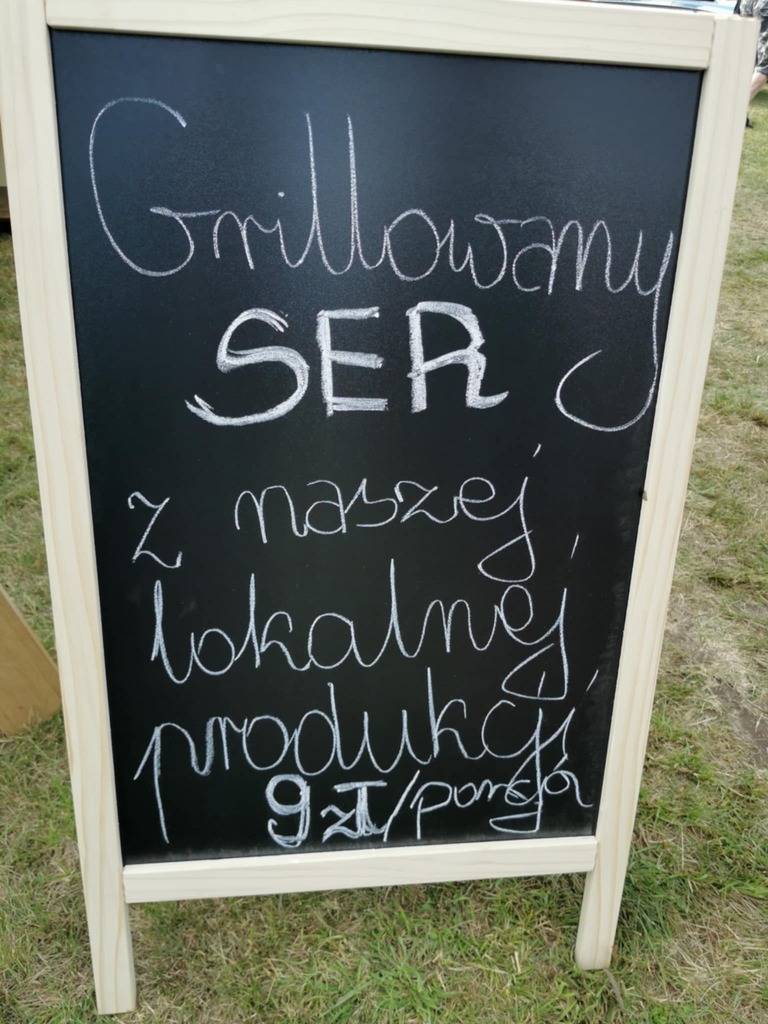 Grillowany
SER
z naszej
lokalnej
produkcji
9 zł/porcja